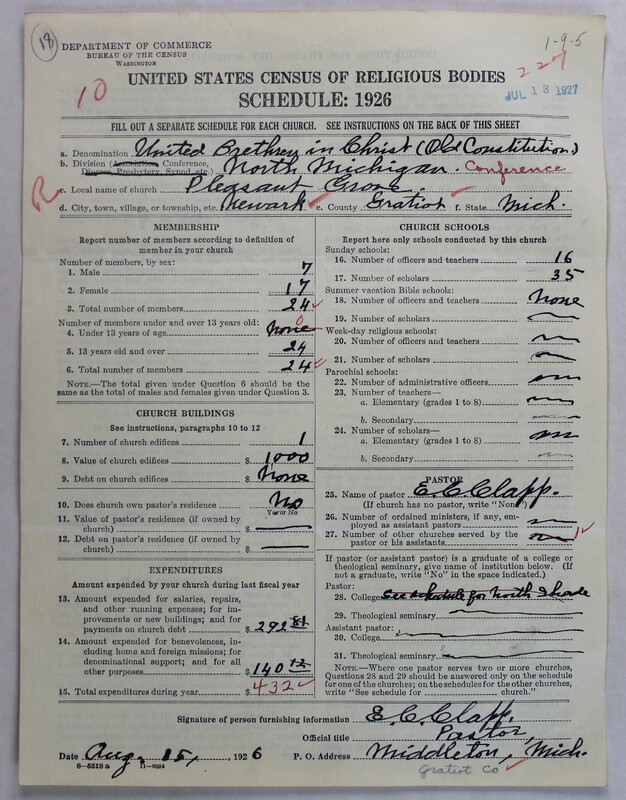 18
DEPARTMENT OF COMMERCE
BUREAU OF THE CENSUS
WASHINGTON
1-9-5
10
227
UNITED STATES CENSUS OF RELIGIOUS BODIES
JUL 13 1927
SCHEDULE: 1926
FILL OUT A SEPARATE SCHEDULE FOR EACH CHURCH. SEE INSTRUCTIONS ON THE BACK OF THIS SHEET
a. Denomination United Brethren in Christ (Old Constitution)
b. Division (Association, Conference, Diocese, Presbytery, Synod, etc.) North Michigan. Conference
R
c. Local name of church Pleasant Grove.
d. City, town, village, or township, etc. Newark e. County Gratiot f. State Mich.
MEMBERSHIP
Report number of members according to definition of
member in your church
Number of members, by sex:
1. Male 7
2. Female 17
3. Total number of members 24
Number of members under and over 13 years old:
4. Under 13 years of age none 0
5. 13 years old and over 24
6. Total number of members 24
NOTE.—The total given under Question 6 should be the
same as the total of males and females given under Question 3.
CHURCH BUILDINGS
See instructions, paragraphs 10 to 12
7. Number of church edifices 1
8. Value of church edifices $ 1000
9. Debt on church edifices $ None
10. Does church own pastor's residence? No
Yes or No
11. Value of pastor's residence (if owned by
church) $
12. Debt on pastor's residence (if owned by
church) $
EXPENDITURES
Amount expended by your church during last fiscal year
13. Amount expended for salaries, repairs,
and other running expenses; for im-
provements or new buildings; and for
payments on church debt $ 292 81
14. Amount expended for benevolences, in-
cluding home and foreign missions; for
denominational support; and for all
other purposes $ 140
15. Total expenditures during year $ 432
CHURCH SCHOOLS
Report here only schools conducted by this church
Sunday schools:
16. Number of officers and teachers 16
17. Number of scholars 35
Summer vacation Bible schools:
18. Number of officers and teachers None
19. Number of scholars
Week-day religious schools:
20. Number of officers and teachers
21. Number of scholars
Parochial schools:
22. Number of administrative officers
23. Number of teachers—
a. Elementary (grades 1 to 8)
b. Secondary
24. Number of scholars—
a. Elementary (grades 1 to 8)
b. Secondary
PASTOR
25. Name of pastor E. C. Clapp.
(If church has no pastor, write "None")
26. Number of ordained ministers, if any, em-
ployed as assistant pastors
27. Number of other churches served by the
pastor or his assistants
If pastor (or assistant pastor) is a graduate of a college or
theological seminary, give name of institution below. (If
not a graduate, write "No" in the space indicated.)
Pastor:
28. College See schedule for North Shade
29. Theological seminary
Assistant pastor:
30. College
31. Theological seminary
NOTE.—Where one pastor serves two or more churches,
Questions 28 and 29 should be answered only on the schedule
for one of the churches; on the schedules for the other churches,
write "See schedule for church."
Signature of person furnishing information E. C. Clapp.
Official title Pastor
Date Aug, 15, 1926 P. O. Address Middleton, Mich.
8—5518 a 11—9054
Gratiot Co